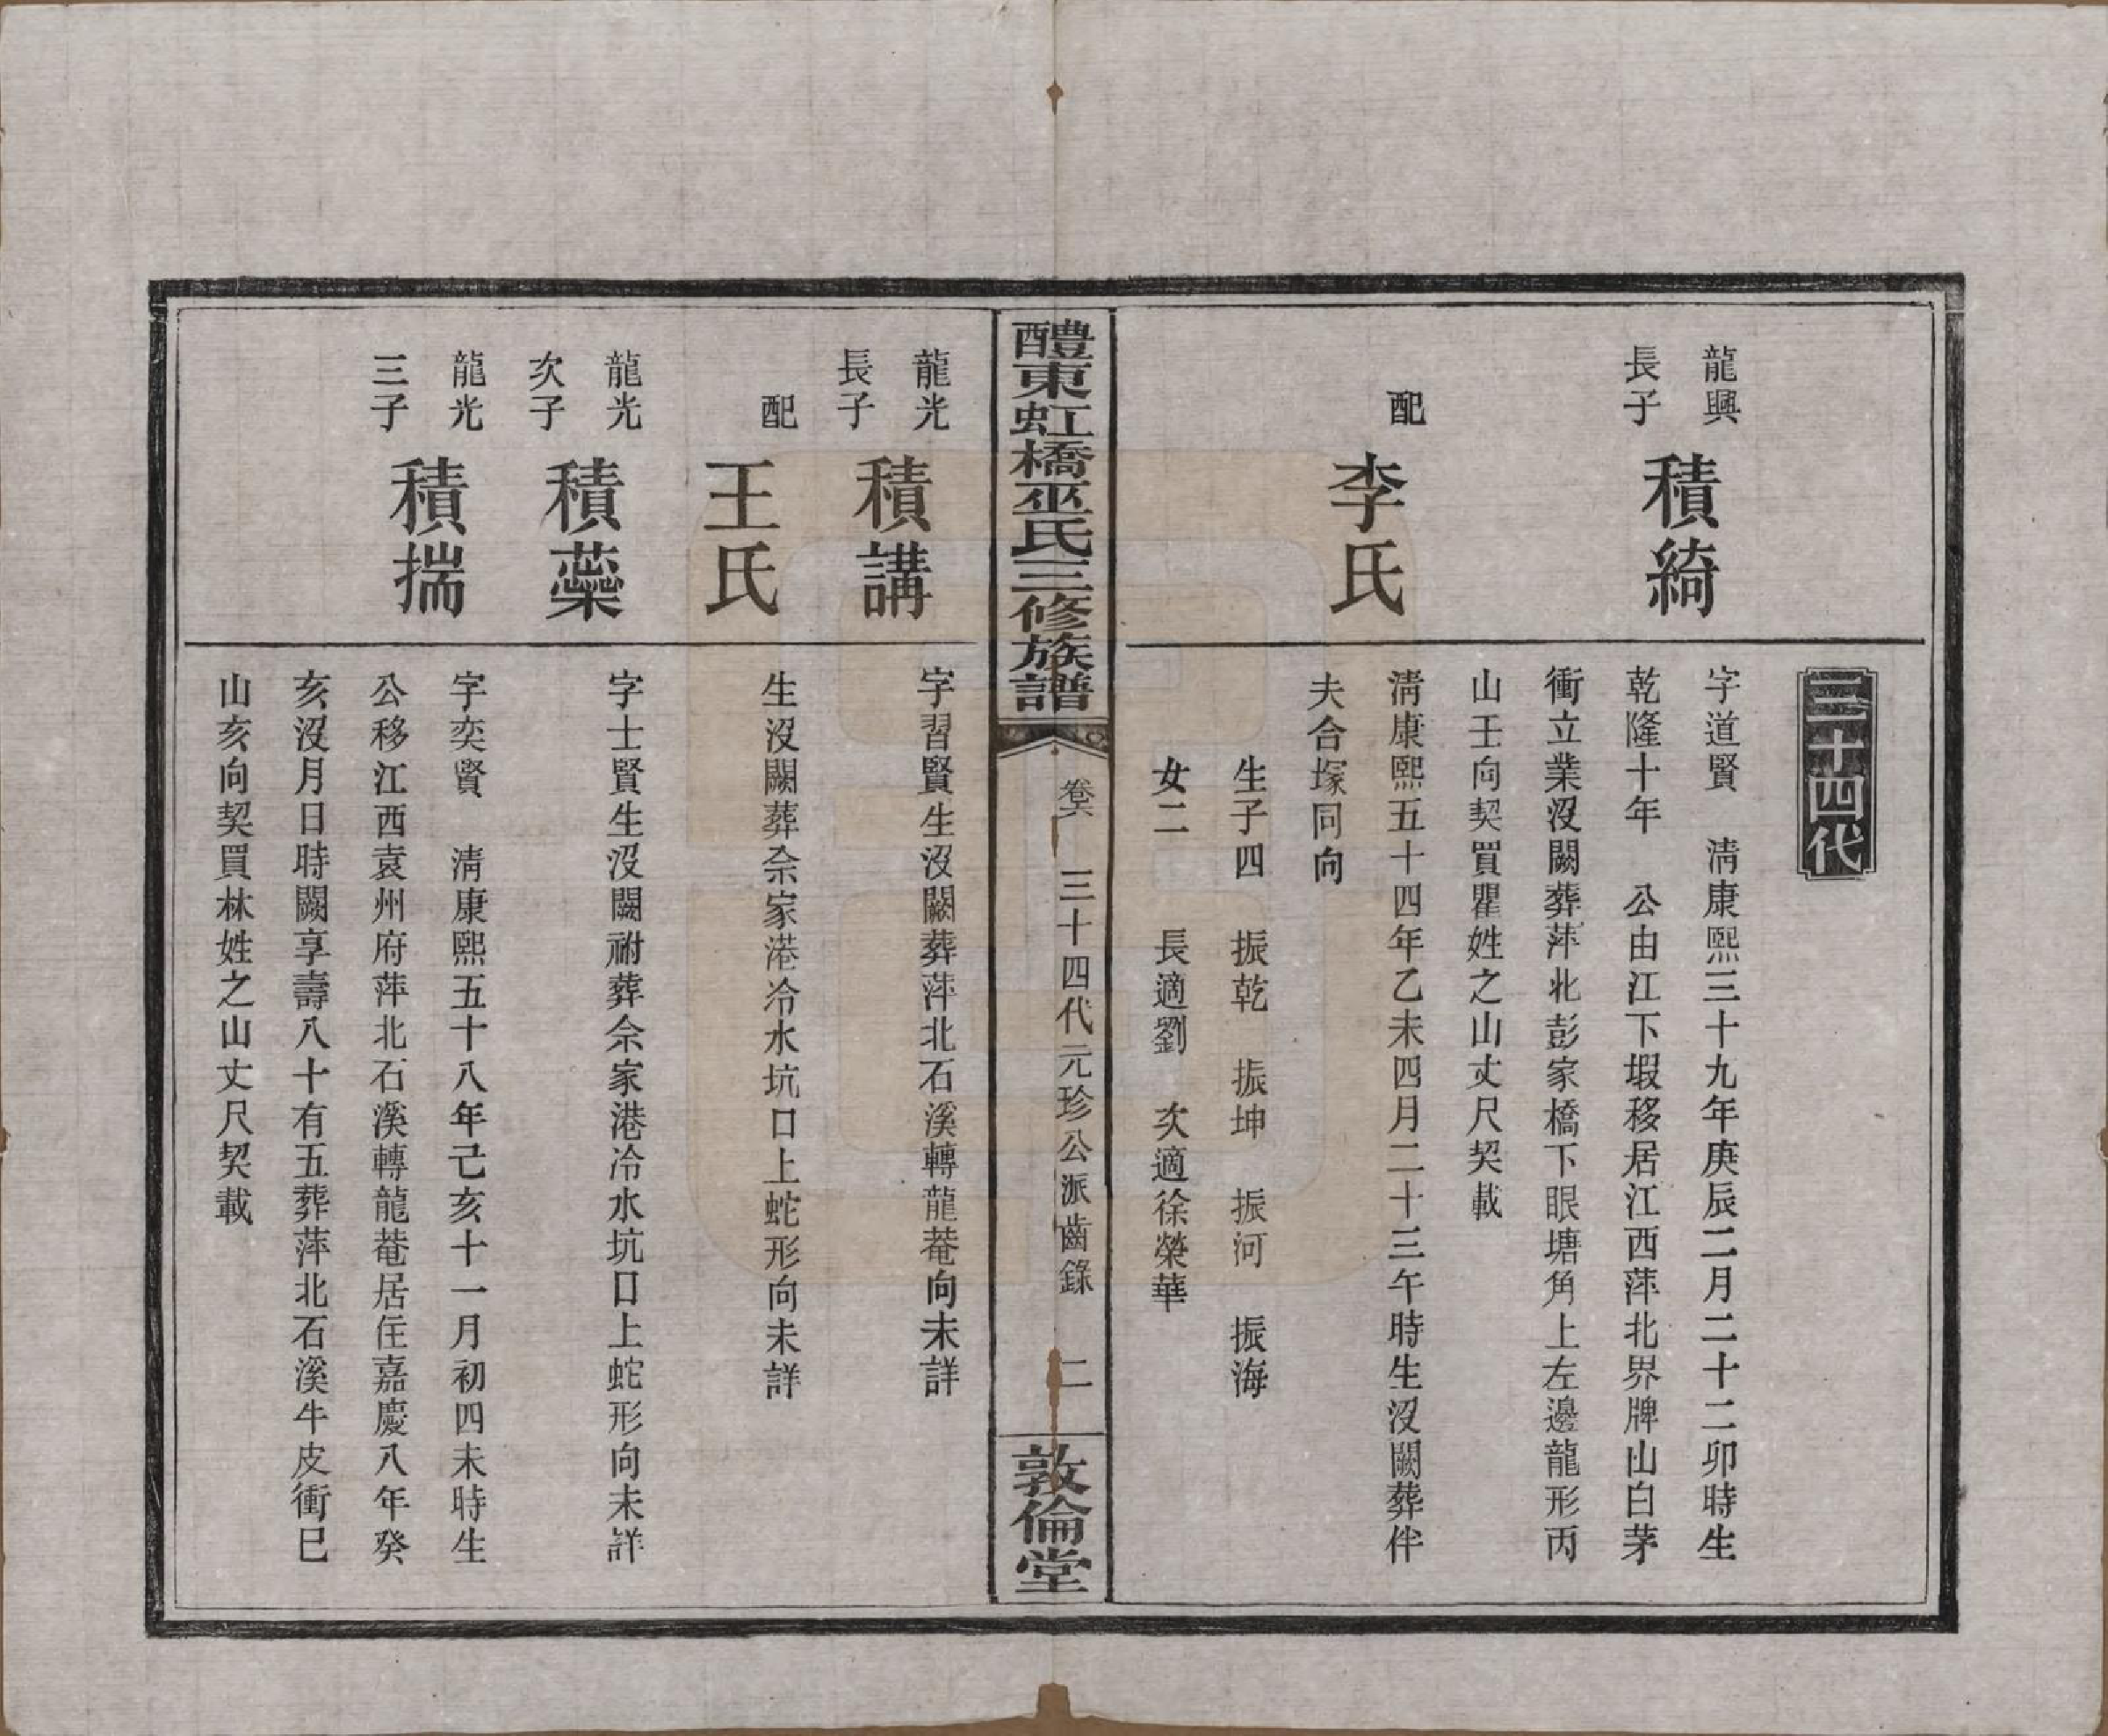 三十四代
龍興
長子
積綺
字道賢　清康熙三十九年庚辰二月二十二卯時生
乾隆十年　公由江下塅移居江西萍北界牌山白茅
衝立業沒闕葬萍北彭家橋下眼塘角上左邊龍形丙
山壬向契買瞿姓之山丈尺契載
配
李氏
清康熙五十四年乙未四月二十三午時生沒闕葬伴
夫合塚同向
生子四　振乾　振坤　振河　振海
女二　長適劉　次適徐榮華
醴東虹橋巫氏三修族譜
卷六　三十四代元珍公派齒錄　二
敦倫堂
龍光
長子
積講
字習賢生沒闕葬萍北石溪轉龍菴向未詳
配
王氏
生沒闕葬佘家港冷水坑口上蛇形向未詳
龍光
次子
積蘂
字士賢生沒闕祔葬佘家港冷水坑口上蛇形向未詳
龍光
三子
積揣
字奕賢　清康熙五十八年己亥十一月初四未時生
公移江西袁州府萍北石溪轉龍菴居住嘉慶八年癸
亥沒月日時闕享壽八十有五葬萍北石溪牛皮衝巳
山亥向契買林姓之山丈尺契載